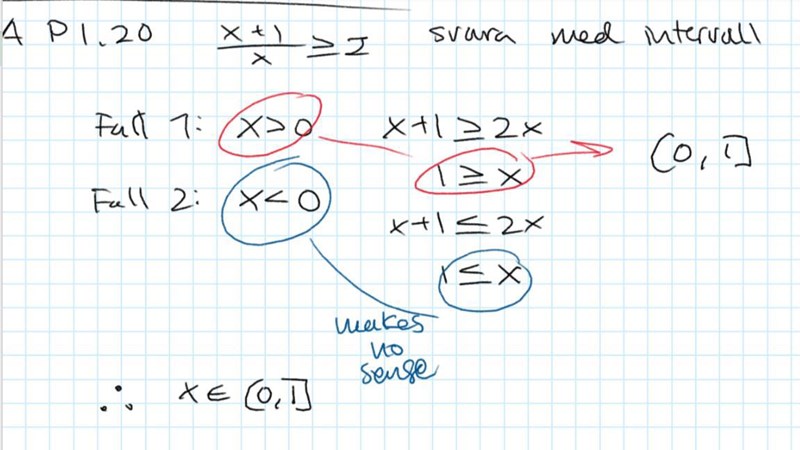 4 P1.20 x+1/x ≥ 2 svara med intervall
Fall 1: x>0 x+1 ≥ 2x
1 ≥ x (0,1]
Fall 2: x<0
x+1 ≤ 2x
1 ≤ x
makes
no
sense
∴ x ∈ (0,1]